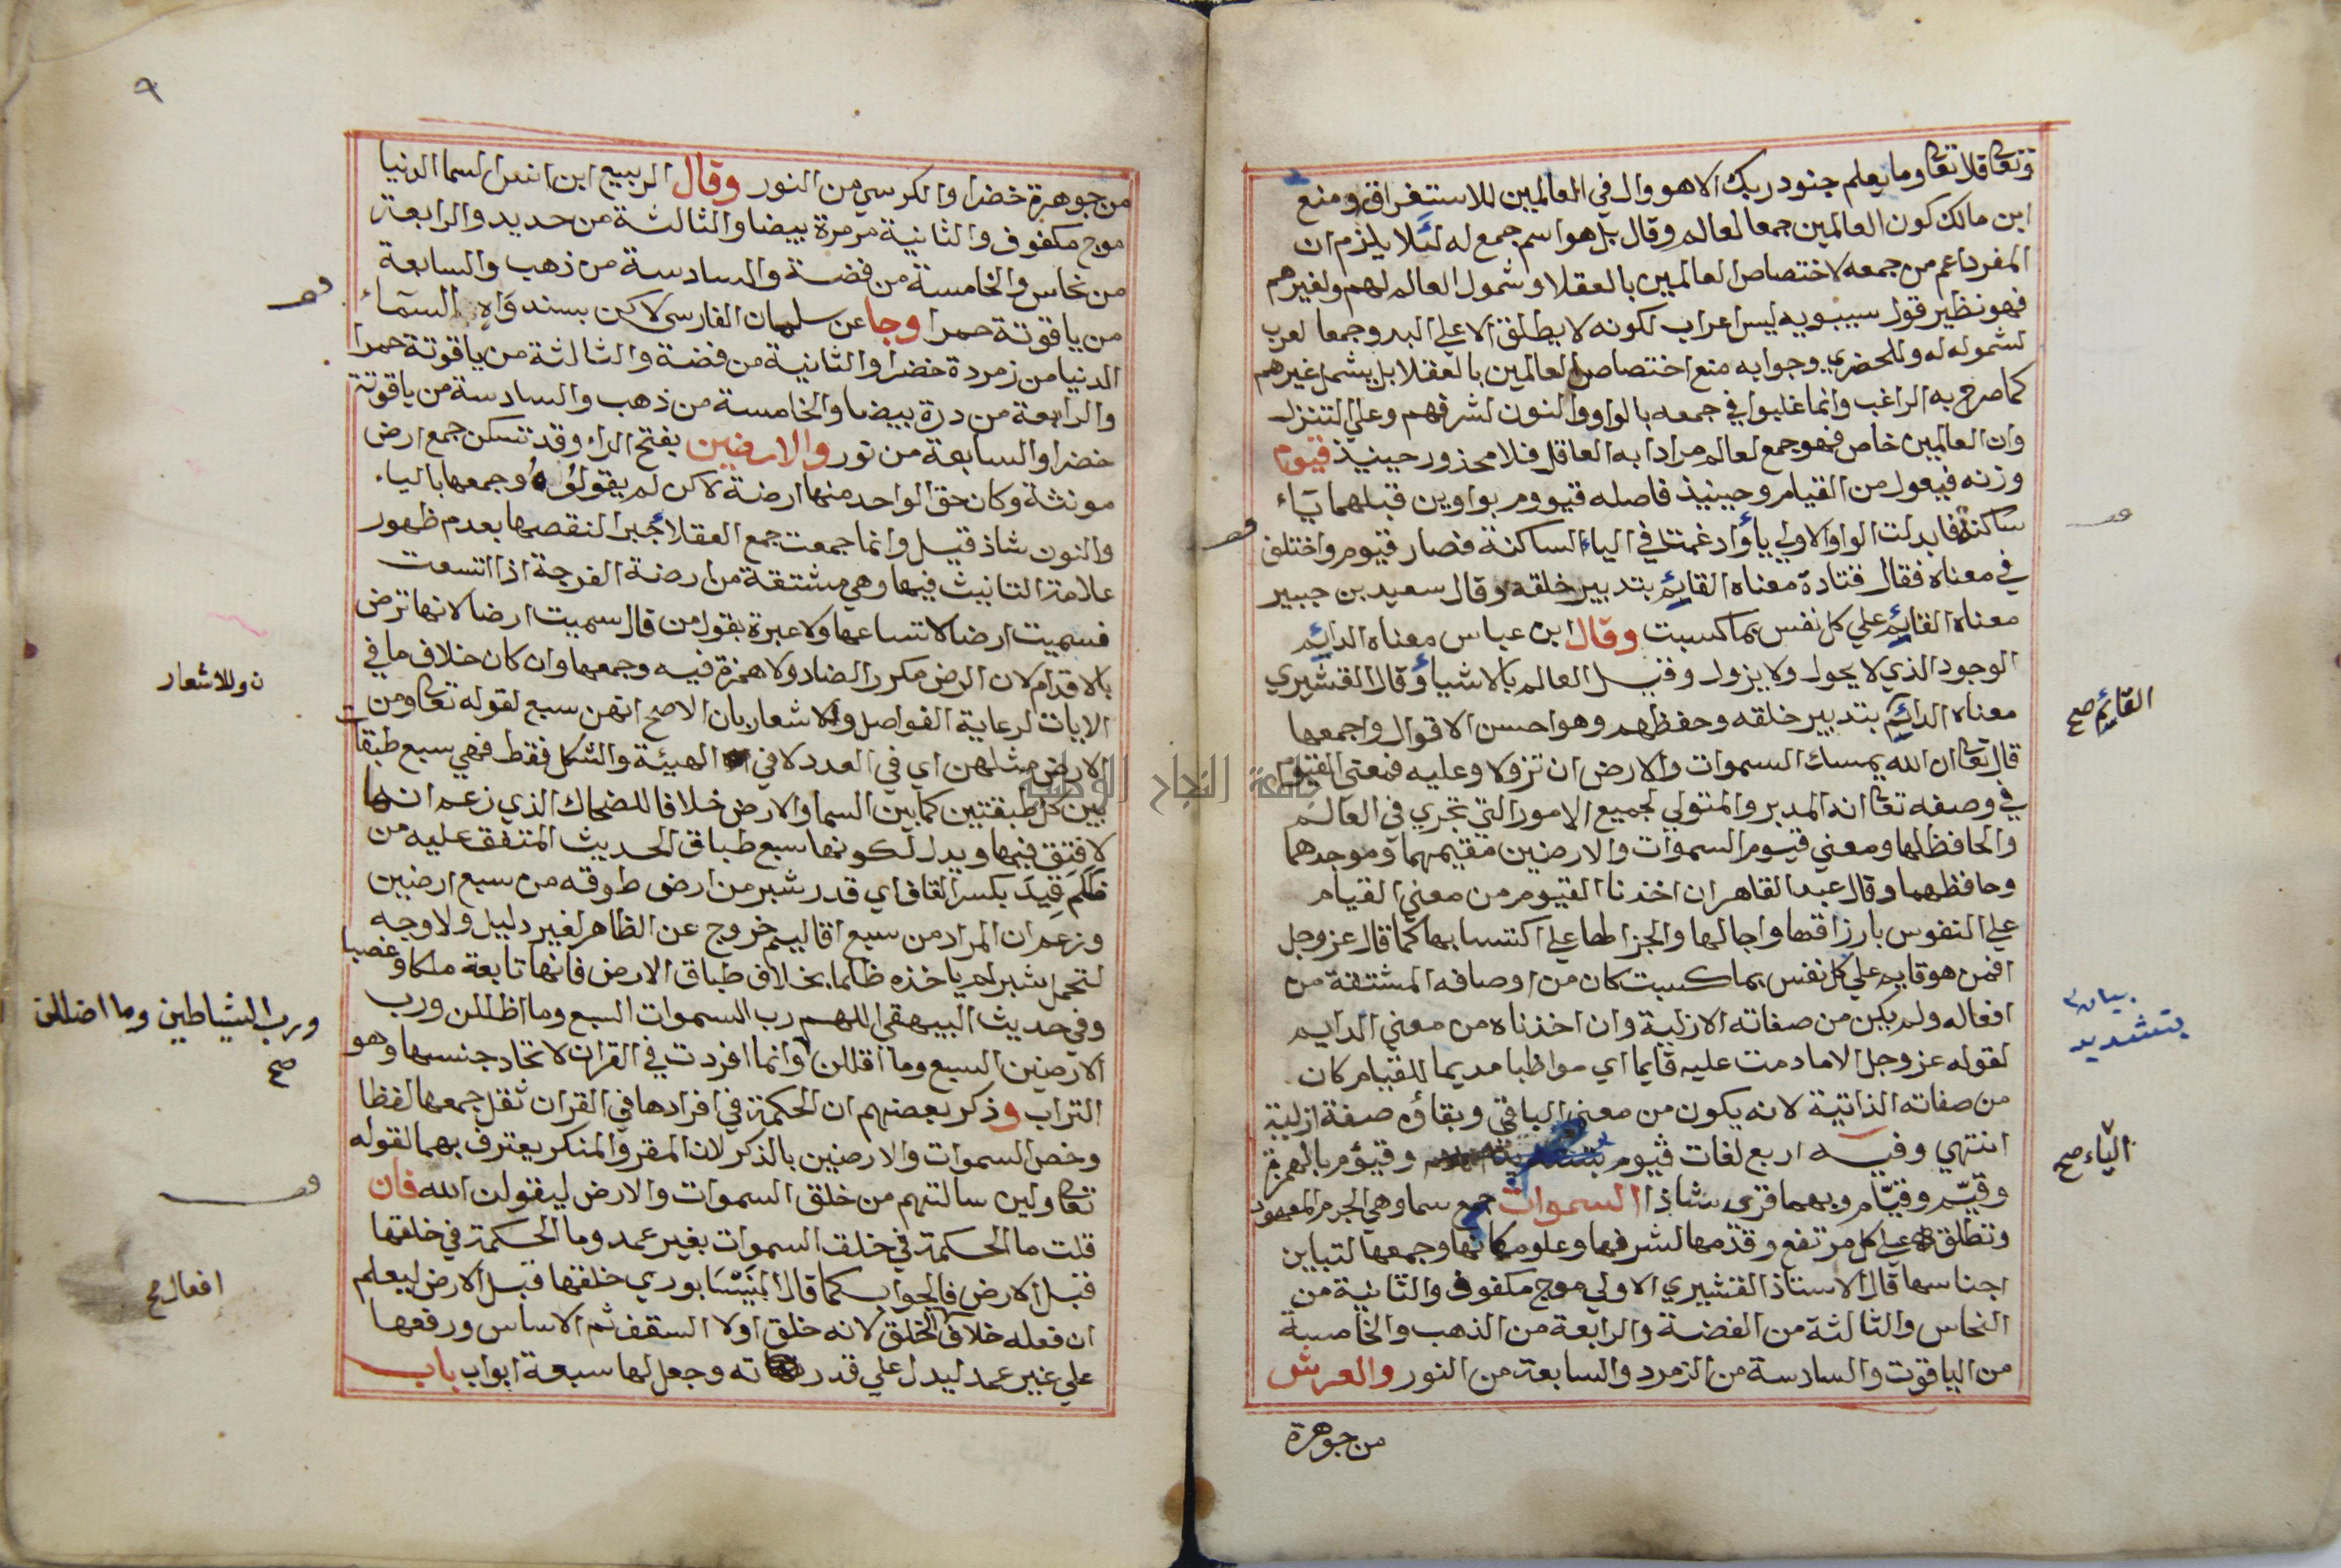 وتعالى قلا تعالى وما يعلم جنود ربك الا هو وال في العالمين للاستغراق ومنع
ابن مالك كون العالمين جمعا لعالم وقال بل هو اسم جمع له لئلا يلزم ان
المفرد اعم من جمعه لاختصاص العالمين بالعقلا وشمول العالم لهم ولغيرهم
فهو نظير قول سيبويه ليس اعراب لكونه لا يطلق الا على البدو جمعا لعرب
لشموله له وللحضري وجوابه منع اختصاص العالمين بالعقلا بل يشمل غيرهم
كما صرح به الراغب وانما غلبوا في جمعه بالواو والنون لشرفهم وعلي التنزل
وان العالمين خاص فهو جمع لعالم مرادا به العاقل فلا محذور حينيذ قيوم
وزنه فيعول من القيام وحينيذ فاصله قيووم بواوين قبلهما ياء
ساكنة فابدلت الواو الاولي ياء وادغمت في الياء الساكنة فصار قيوم واختلف
في معناه فقال قتادة معناه القائم بتدبير خلقه وقال سعيد بن جبير
معناه القائم علي كل نفس بما كسبت وقال ابن عباس معناه الدائم
الوجود الذي لا يحول ولا يزول وقيل العالم بالاشياء وقال القشيري
معناه الدائم بتدبير خلقه وحفظهم وهو احسن الاقوال واجمعها
قال تعالى ان الله يمسك السموات والارض ان تزولا وعليه فمعنى القيوم
في وصفه تعالى انه المدبر والمتولي لجميع الامور التي تجري في العالم
والحافظ لها ومعني قيوم السموات والارضين مقيمهما وموجدهما
وحافظهما وقال عبد القاهر ان اخذنا القيوم من معني القيام
علي النفوس بارزاقها واجالها والجزا لها علي اكتسابها كما قال عز وجل
افمن هو قايم علي كل نفس بما كسبت كان من اوصافه المشتقة من
افعاله ولم يكن من صفاته الازلية وان اخذناه من معني الدايم
لقوله عز وجل الا ما دمت عليه قايما اي مواظبا مديما للقيام كان
من صفاته الذاتية لانه يكون من معني الباقي وبقاؤه صفة ازلية
انتهي وفيه اربع لغات قيوم وقيؤم بالهمزة
وقيّم وقيّام وبهما قري شاذا السموات جمع سما وهي الجرم المعهود
وتطلق على كل مرتفع وقدمها لشرفها وعلو مكانها وجمعها لتباين
اجناسها قال الاستاذ القشيري الاولي موج مكفوف والثانية من
النحاس والثالثة من الفضة والرابعة من الذهب والخامسة
من الياقوت والسادسة من الزمرد والسابعة من النور والعرش
من جوهرة
القائم صح
بيان
بتشديد
الياء صح
٩
من جوهرة خضرا والكرسي من النور وقال الربيع ابن انس السما الدنيا
موج مكفوف والثانية مرمرة بيضا والثالثة من حديد والرابعة
من نحاس والخامسة من فضة والسادسة من ذهب والسابعة
من ياقوتة حمرا وجا عن سلمان الفارسي لاكن بسند واه السماء
الدنيا من زمردة خضرا والثانية من فضة والثالثة من ياقوتة حمرا
والرابعة من درة بيضا والخامسة من ذهب والسادسة من ياقوتة
خضرا والسابعة من نور والارضين بفتح الراء وقد تسكن جمع ارض
مونثة وكان حق الواحد منها ارضة لاكن لم يقولوه وجمعها بالياء
والنون شاذ قيل وانما جمعت جمع العقلا جبرا لنقصها بعدم ظهور
علامة التانيث فيها وهي مشتقة من ارضة الفرجة اذا اتسعت
فسميت ارضا لاتساعها ولا عبرة بقول من قال سميت ارضا لانها ترض
بالاقدام لان الرض مكرر الضاد ولا همزة فيه وجمعها وان كان خلاف ما في
الايات لرعاية الفواصل والاشعار بان الاصح انهن سبع لقوله تعالى ومن
الارض مثلهن اي في العدد لا في الهيئة والشكل فقط فهي سبع طبقات
بين كل طبقتين كما بين السما والارض خلافا للضحاك الذي زعم انها
لا فتق فيها ويدل لكونها سبع طباق الحديث المتفق عليه من
ظلم قيد بكسر القاف اي قدر شبر من ارض طوقه من سبع ارضين
وزعم ان المراد من سبع اقاليم خروج عن الظاهر لغير دليل ولا وجه
لتحمل شبر لم ياخذه ظلما بخلاف طباق الارض فانها تابعة ملكا وغصبا
وفي حديث البيهقي اللهم رب السموات السبع وما اظللن ورب
الارضين السبع وما اقللن وانما افردت في القران لاتحاد جنسها وهو
التراب وذكر بعضهم ان الحكمة في افرادها في القران ثقل جمعها لفظا
وخص السموات والارضين بالذكر لان المقر والمنكر يعترف بهما لقوله
تعالى ولين سالتهم من خلق السموات والارض ليقولن الله فان
قلت ما الحكمة في خلق السموات بغير عمد وما الحكمة في خلقها
قبل الارض فالجواب كما قال النيسابوري خلقها قبل الارض ليعلم
ان فعله خلاف الخلق لانه خلق اولا السقف ثم الاساس ورفعها
علي غير عمد ليدل علي قدرته وجعل لها سبعة ابواب باب
ن وللاشعار
ورب الشياطين وما اضللن
صح
افعال صح
جامعة النجاح الوطنية